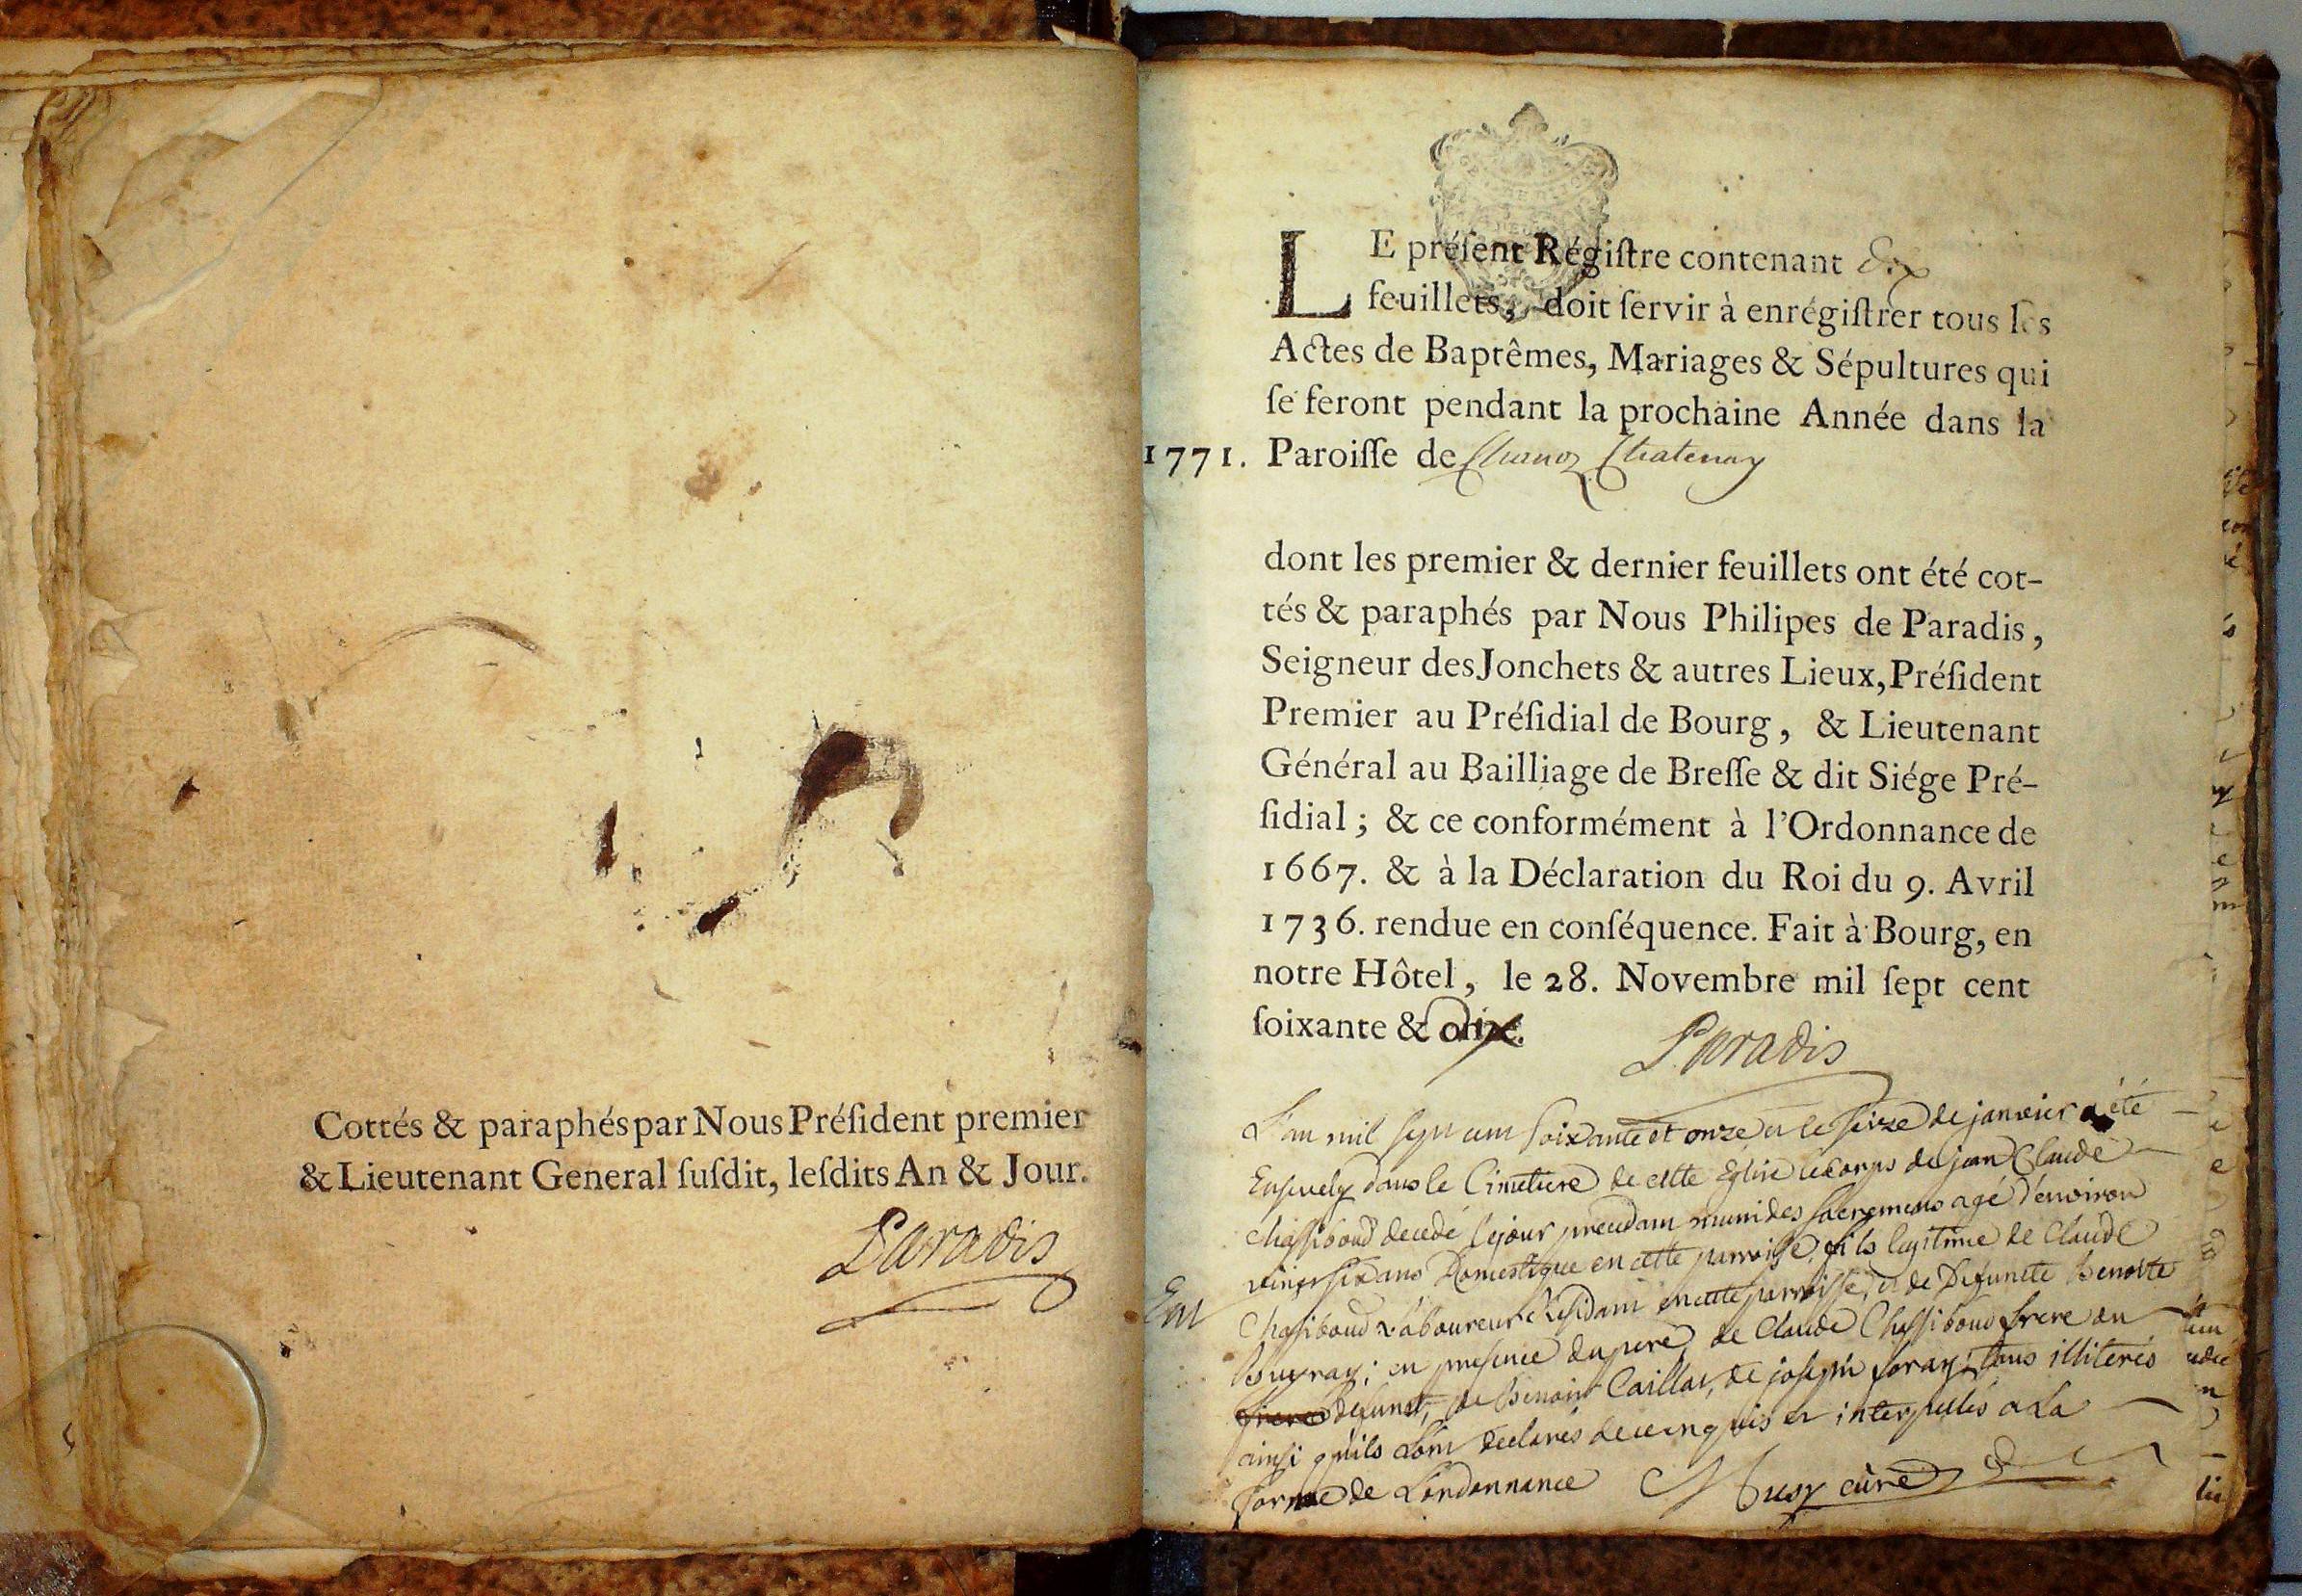 Cottés & paraphés par Nous Préſident premier
& Lieutenant General ſuſdit, leſdits An & Jour.
Paradis
LE préſent Régiſtre contenant dix
feuillets, doit ſervir à enrégiſtrer tous les
Actes de Baptêmes, Mariages & Sépultures qui
ſe feront pendant la prochaine Année dans la
1771. Paroiſſe de Chanoz Chatenay
dont les premier & dernier feuillets ont été cot-
tés & paraphés par Nous Philipes de Paradis,
Seigneur des Jonchets & autres Lieux, Préſident
Premier au Préſidial de Bourg, & Lieutenant
Général au Bailliage de Breſſe & dit Siége Pré-
ſidial; & ce conformément à l'Ordonnance de
1667. & à la Déclaration du Roi du 9. Avril
1736. rendue en conſéquence. Fait à Bourg, en
notre Hôtel, le 28. Novembre mil ſept cent
ſoixante & dix.
Paradis
L'an mil sept cent soixante et onze et le seize de janvier a été
Ensevely dans le Cimetiere de cette Eglise le corps de jean Claude
chassiboud decedé le jour precedant muni des sacremens agé d'environ
vingt six ans Domestique en cette parroisse, fils legitime de Claude
Chasiboud Laboureur Residant en cette parroisse, et de Defuncte Benoite
; en presence du pere, de Claude Chassiboud frere du
defunct, de Benoit Caillat, de joseph foray; tous illiterés
ainsi qu'ils L'ont declarés de ce enquis et interpellés a La
forme de L'ordonnance curé